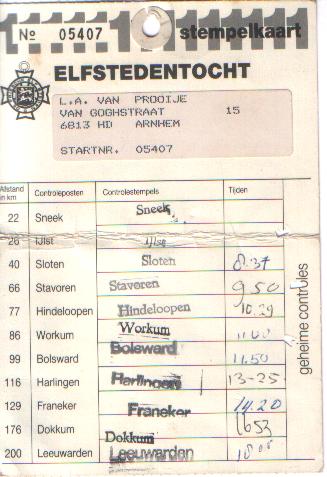 № 05407 stempelkaart
ELFSTEDENTOCHT
L.A. VAN PROOIJE
VAN GOGHSTRAAT 15
6813 HD ARNHEM
STARTNR. 05407
Afstand in km Controleposten Controlestempels Tijden
22 Sneek Sneek
26 IJlst IJlst
40 Sloten Sloten 8.37
66 Stavoren Stavoren 9.50
77 Hindeloopen Hindeloopen 10.29
86 Workum Workum 11.00
99 Bolsward Bolsward 11.50
116 Harlingen Harlingen 13-25
129 Franeker Franeker 14.20
176 Dokkum Dokkum 1653
200 Leeuwarden Leeuwarden
geheime controles